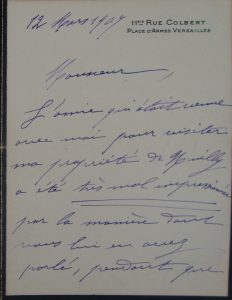 11bis RUE COLBERT
PLACE D'ARMES VERSAILLES
12 Mars 1907
Monsieur,
L'amie qui était venue
avec moi pour visiter
ma propriété de Neuilly
a été très mal impressionnée
par la manière dont
vous lui en avez
parlé, pendant que